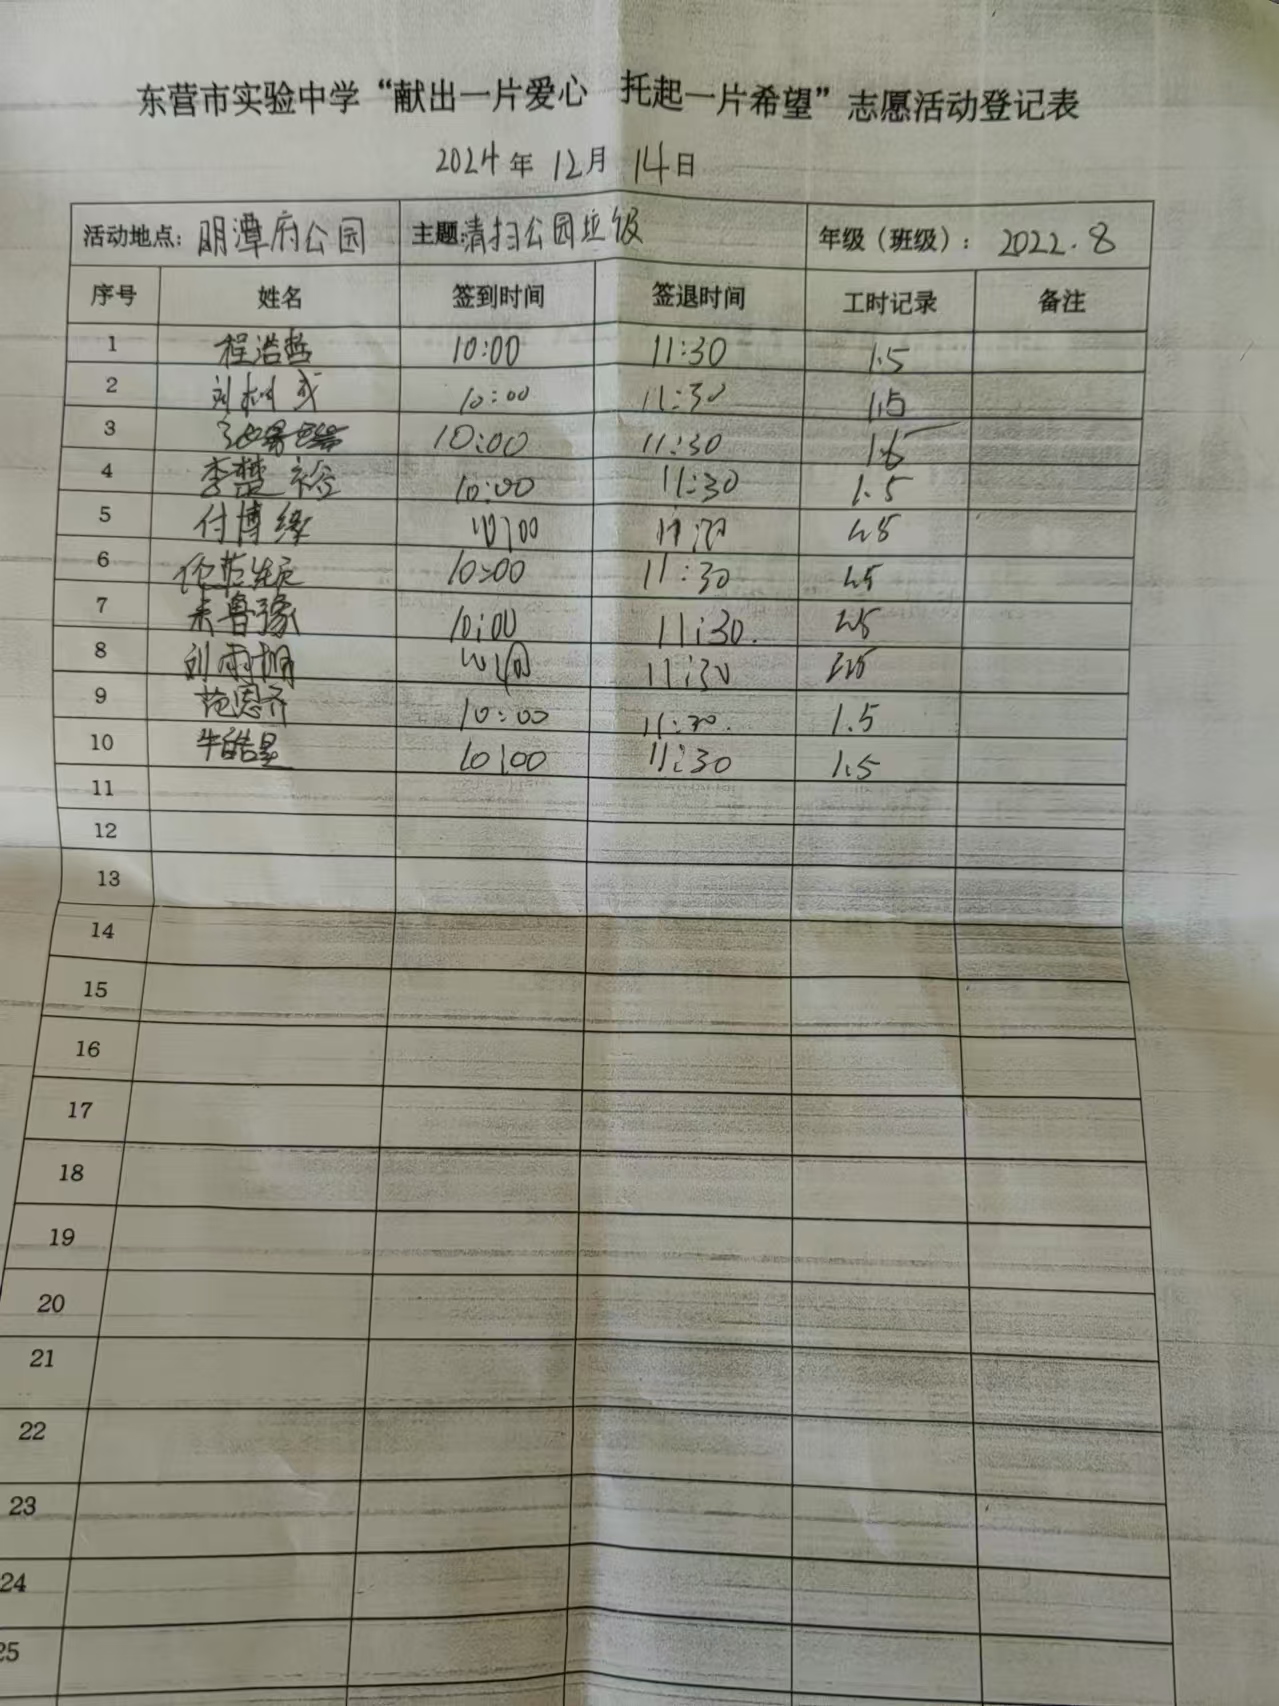 东营市实验中学“献出一片爱心 托起一片希望”志愿活动登记表
2024年12月14日
活动地点：明潭府公园 主题：清扫公园垃圾 年级（班级）：2022.8
序号 姓名 签到时间 签退时间 工时记录 备注
1 程浩哲 10:00 11:30 1.5
2 10:00 11:30 1.5
3 10:00 11:30 1.5
4 李楚裕 10:00 11:30 1.5
5 付博缘 10:00 11:30 1.5
6 10:00 11:30 1.5
7 鲁豫 10:00 11:30. 1.5
8 刘雨桐 11:30 1.5
9 恩齐 10:00 11:30. 1.5
10 牛皓星 10:00 11:30 1.5
11
12
13
14
15
16
17
18
19
20
21
22
23
24
25